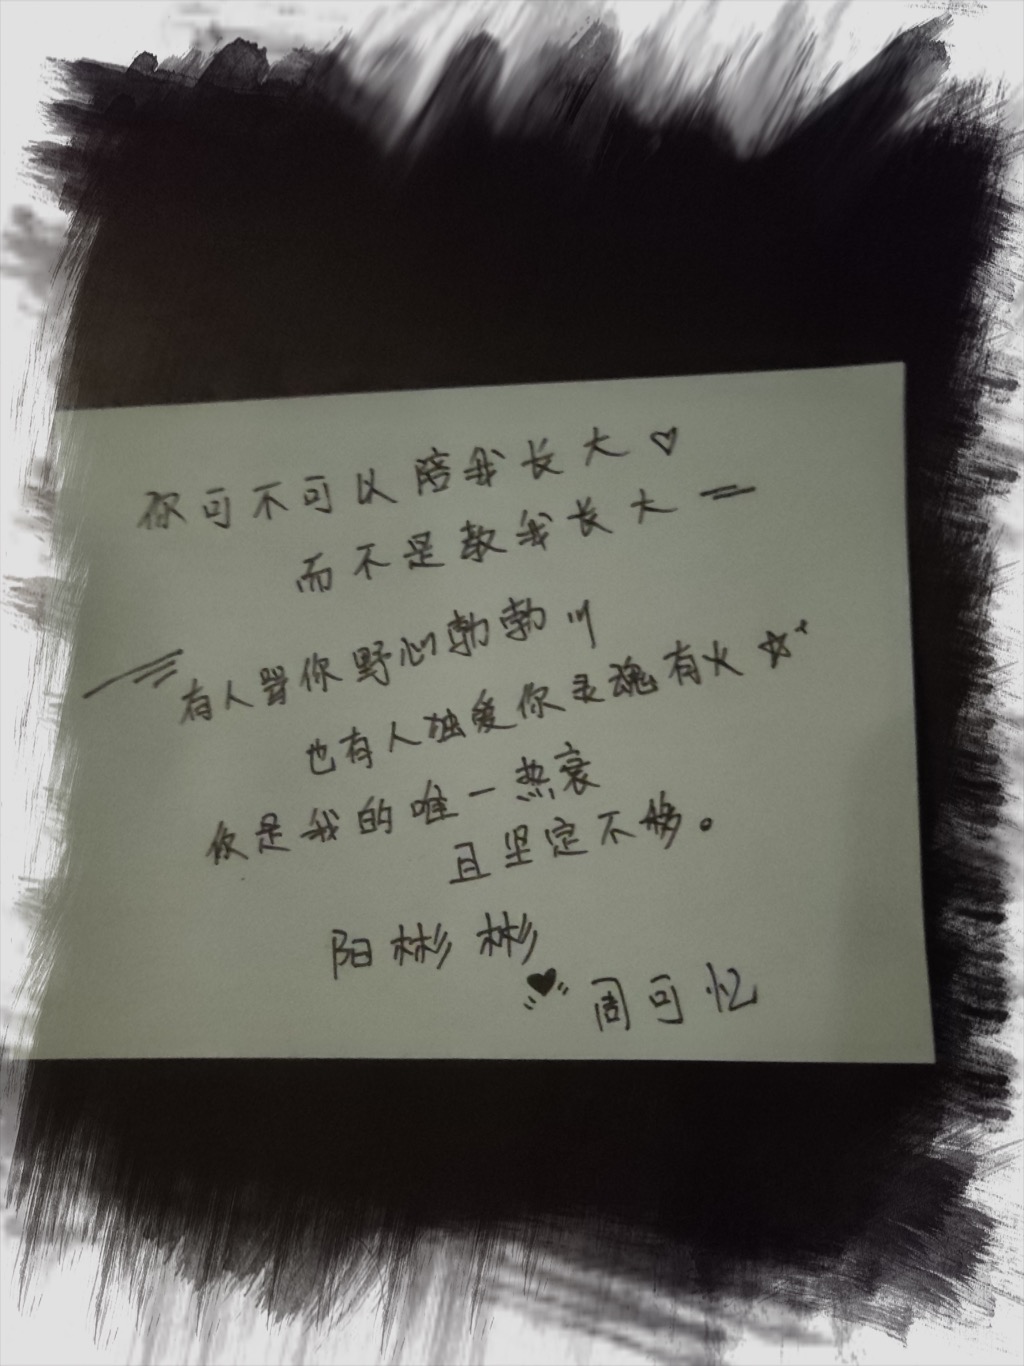 你可不可以陪我长大♡
而不是教我长大
有人骂你野心勃勃
也有人独爱你灵魂有火☆
你是我的唯一热衷
且坚定不移。
阳彬彬
♥周可忆